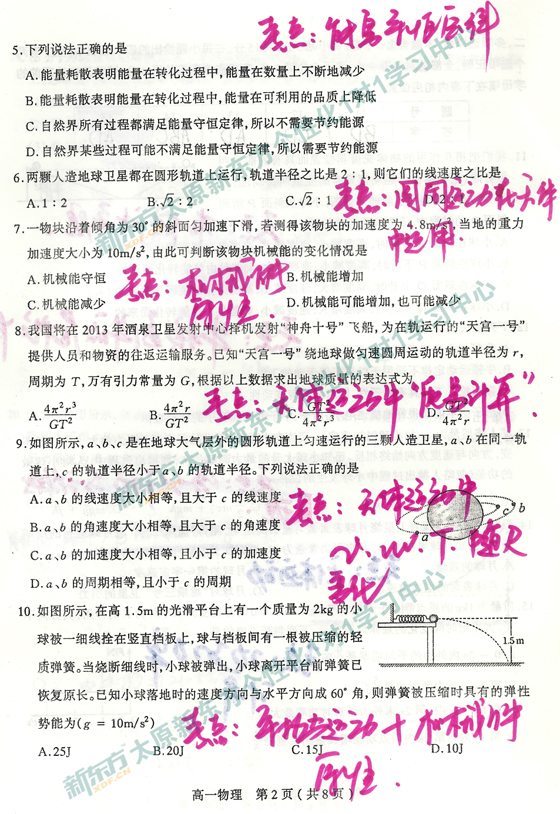 考点:
5.下列说法正确的是
A.能量耗散表明能量在转化过程中,能量在数量上不断地减少
B.能量耗散表明能量在转化过程中,能量在可利用的品质上降低
C.自然界所有过程都满足能量守恒定律,所以不需要节约能源
D.自然界某些过程可能不满足能量守恒定律,所以需要节约能源
6.两颗人造地球卫星都在圆形轨道上运行,轨道半径之比是2:1,则它们的线速度之比是
A.1:2 B.√2:2 C.√2:1 D.2:1
考点:圆周运动在天体中运用.
7.一物块沿着倾角为30°的斜面匀加速下滑,若测得该物块的加速度为4.8m/s²,当地的重力
加速度大小为10m/s²,由此可判断该物块机械能的变化情况是
A.机械能守恒 B.机械能增加
C.机械能减少 D.机械能可能增加,也可能减少
考点:机械能守恒.
8.我国将在2013年酒泉卫星发射中心择机发射“神舟十号”飞船,为在轨运行的“天宫一号”
提供人员和物资的往返运输服务。已知“天宫一号”绕地球做匀速圆周运动的轨道半径为r,
周期为T,万有引力常量为G,根据以上数据求出地球质量的表达式为
A.4π²r³/GT² B.4π²r/GT² C.GT²/4π²r³ D.GT²/4π²r
考点:天体运动中“质量计算”.
9.如图所示,a、b、c是在地球大气层外的圆形轨道上匀速运行的三颗人造卫星,a、b在同一轨
道上,c的轨道半径小于a、b的轨道半径。下列说法正确的是
A.a、b的线速度大小相等,且大于c的线速度
B.a、b的角速度大小相等,且大于c的角速度
C.a、b的加速度大小相等,且小于c的加速度
D.a、b的周期相等,且小于c的周期
考点:天体运动中
c b
a
10.如图所示,在高1.5m的光滑平台上有一个质量为2kg的小
球被一细线拴在竖直档板上,球与档板间有一根被压缩的轻
质弹簧。当烧断细线时,小球被弹出,小球离开平台前弹簧已
恢复原长。已知小球落地时的速度方向与水平方向成60°角,则弹簧被压缩时具有的弹性
势能为(g=10m/s²)
1.5m
A.25J B.20J C.15J D.10J
考点:平抛运动+机械能守恒.
高一物理 第2页(共8页)
新东方 太原新东方个性化1对1学习中心
XDF.CN